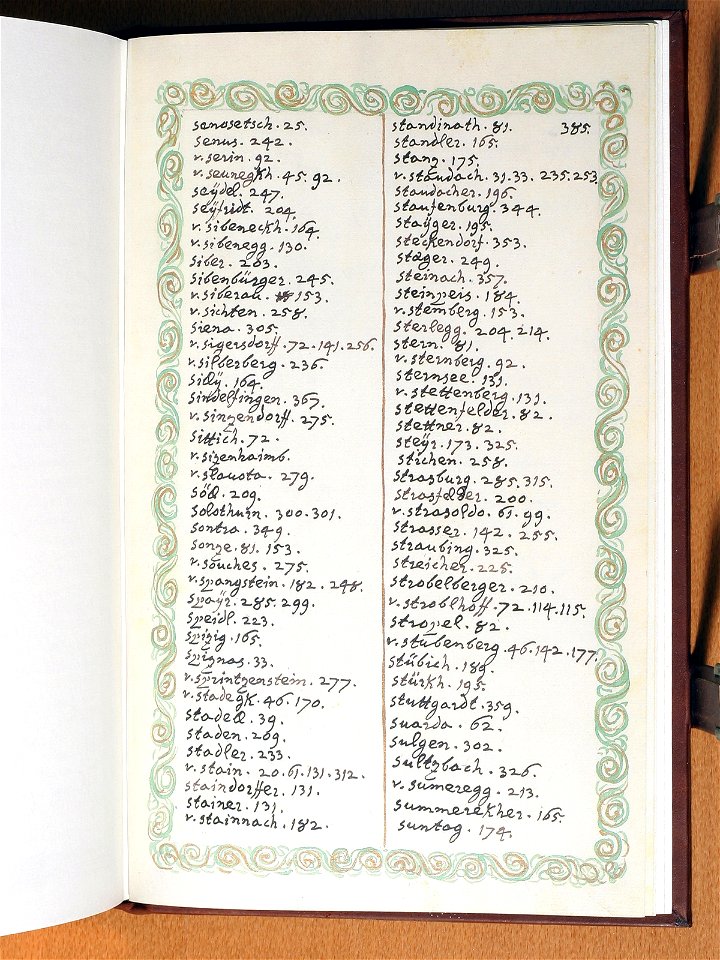 senosetsch . 25.
senus . 242 .
v. serin . 92 .
v. seunegkh . 45 . 92 .
seÿdel . 247.
seÿfridt . 204.
v. sibeneckh . 164.
v. sibenegg . 130.
siber . 203.
sibenbürger . 245.
v. siberau . 153.
v. sichten . 258.
siena . 305.
v. sigersdorff . 72 . 141 . 256.
v. silberberg . 236.
sillÿ . 164.
sindelfingen . 367.
v. sinzendorff . 275.
sittich . 72 .
v. sizenhaimb.
v. slausta . 279.
söll . 209.
solothurn . 300 . 301.
sontra . 349.
sonze . 81 . 153.
v. souches . 275.
v. spangstein . 182 . 248.
spaÿr . 285 . 299.
speidl . 223.
spizig . 165.
spignas . 33.
v. sprintzenstein . 277.
v. stadegk . 46 . 170.
stadell . 39.
staden . 269.
stadler . 233.
v. stain . 20 . 61 . 131 . 312 .
staindorffer . 131.
stainer . 131.
v. stainnach . 182 .
standinath . 81. 385.
standler . 165.
stanz . 175.
v. staudach . 31 . 33 . 235 . 253.
staudacher . 196.
staufenburg . 344.
staÿger . 195.
steckendorf . 353.
stæger . 249.
steinach . 357.
steinpeis . 184.
v. stemberg . 153.
sterlegg . 204 . 214.
stern . 81.
v. sternberg . 92 .
sternsee . 131.
v. stettenberg . 131.
stettenfelder . 82 .
stettner . 82 .
steÿr . 173 . 325.
stichen . 258.
strasburg . 285 . 315.
strasfelder . 200.
v. strasoldo . 61 . 99.
strasser . 142 . 255.
straubing . 325.
streicher . 225.
strobelberger . 210.
v. stroblhoff . 72 . 114 . 115.
stropel . 82 .
v. stubenberg . 46 . 142 . 177.
stübich . 189.
stürkh . 195.
stuttgardt . 359.
suarda . 62 .
sulgen . 302 .
sultzbach . 326.
v. sumeregg . 213.
summerekher . 165.
suntag . 174.